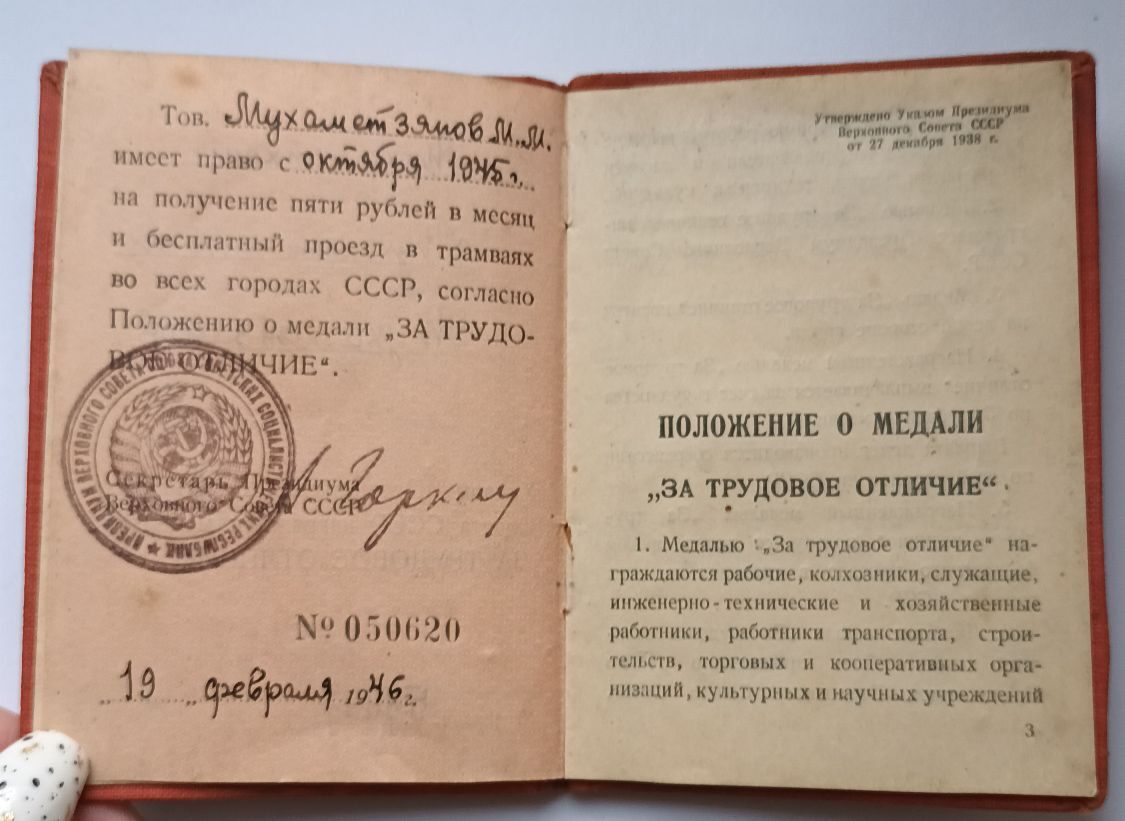 Тов. Мухаметзянов М.М.
имеет право с октября 1945 г.
на получение пяти рублей в месяц
и бесплатный проезд в трамваях
во всех городах СССР, согласно
Положению о медали „ЗА ТРУДО-
ВОЕ ОТЛИЧИЕ“.
Секретарь Президиума
Верховного Совета СССР
№ 050620
„19„ февраля 1946 г.
Утверждено Указом Президиума
Верховного Совета СССР
от 27 декабря 1938 г.
ПОЛОЖЕНИЕ О МЕДАЛИ
„ЗА ТРУДОВОЕ ОТЛИЧИЕ“.
1. Медалью „За трудовое отличие“ на-
граждаются рабочие, колхозники, служащие,
инженерно-технические и хозяйственные
работники, работники транспорта, строи-
тельств, торговых и кооперативных орга-
низаций, культурных и научных учреждений
3